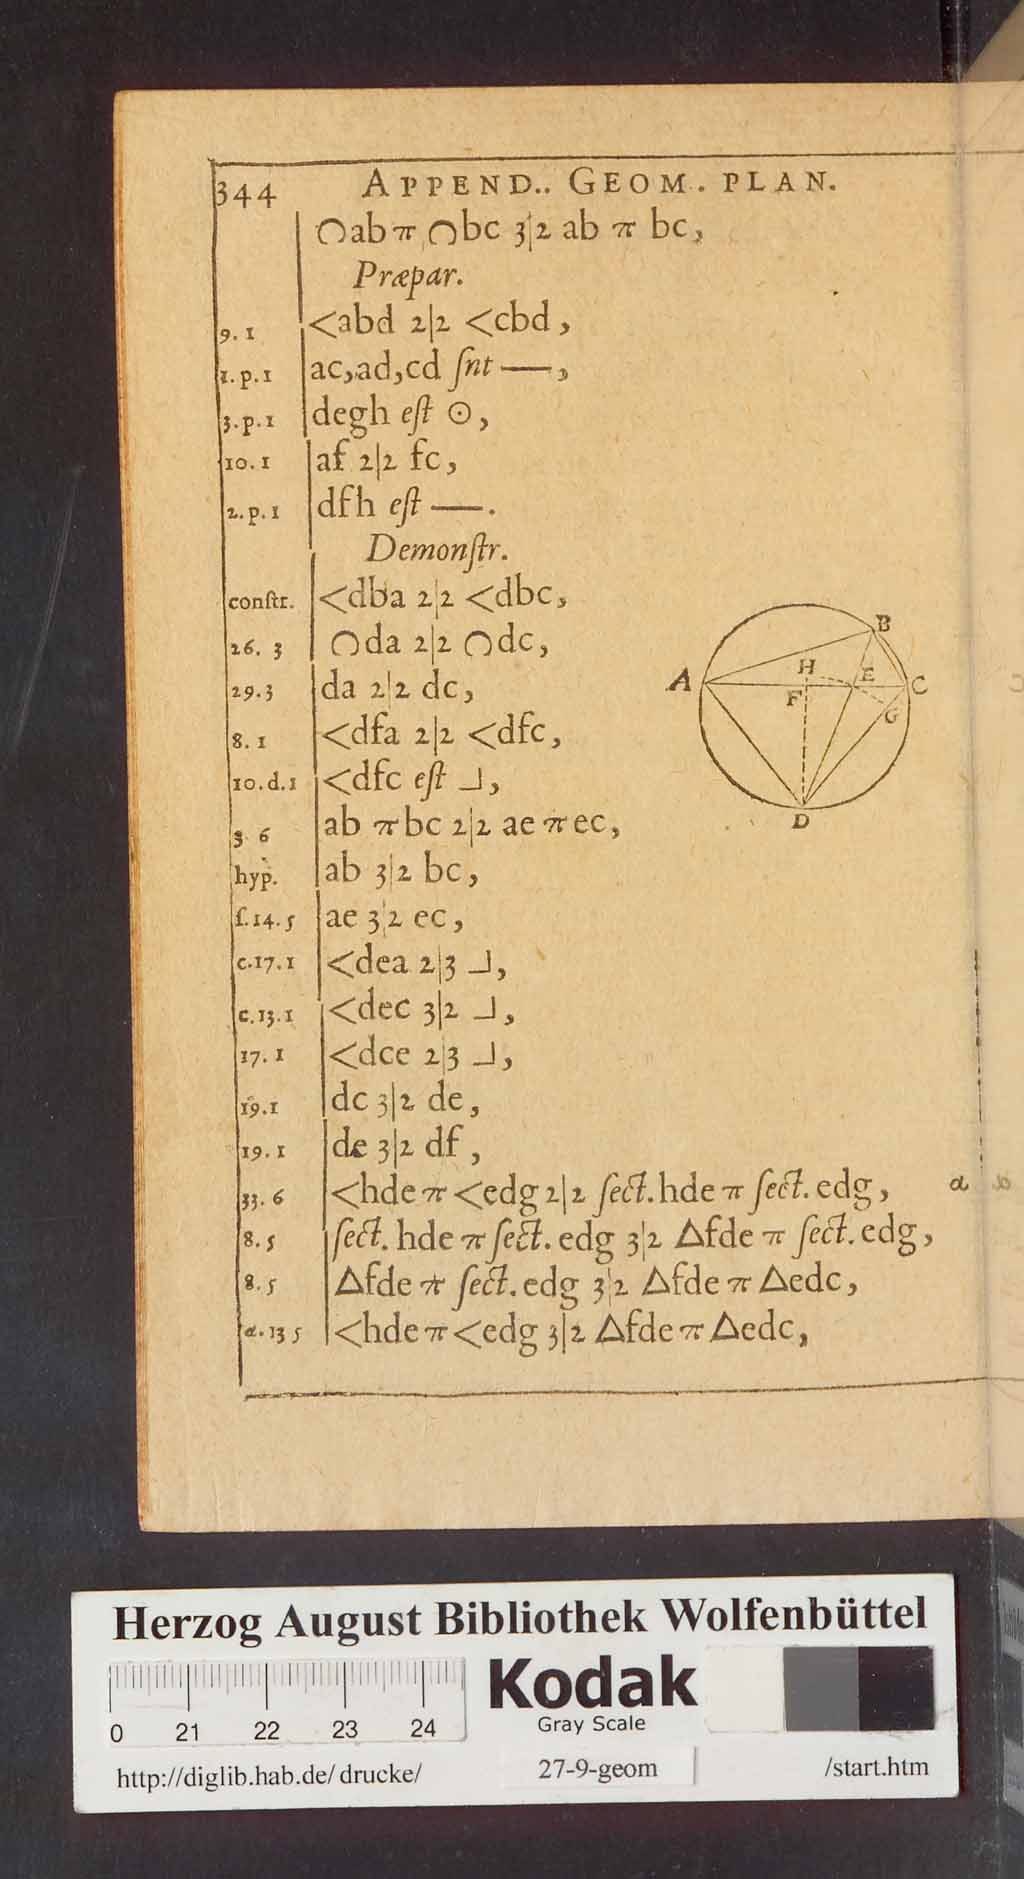 344 APPEND.. GEOM. PLAN.
∩ab π ∩bc 3|2 ab π bc,
Præpar.
9. 1 <abd 2|2 <cbd,
1. p. 1 ac, ad, cd ſnt —,
3. p. 1 degh eſt ⊙,
10. 1 af 2|2 fc,
2. p. 1 dfh eſt —.
Demonſtr.
conſtr. <dba 2|2 <dbc,
26. 3 ∩da 2|2 ∩dc,
29. 3 da 2|2 dc,
8. 1 <dfa 2|2 <dfc,
10. d. 1 <dfc eſt ⅃,
3 6 ab π bc 2|2 ae π ec,
hyp. ab 3|2 bc,
ſ. 14. 5 ae 3|2 ec,
c. 17. 1 <dea 2|3 ⅃,
c. 13. 1 <dec 3|2 ⅃,
17. 1 <dce 2|3 ⅃,
19. 1 dc 3|2 de,
19. 1 de 3|2 df,
33. 6 <hde π <edg 2|2 ſect. hde π ſect. edg,
8. 5 ſect. hde π ſect. edg 3|2 △fde π ſect. edg,
8. 5 △fde π ſect. edg 3|2 △fde π △edc,
a. 13 5 <hde π <edg 3|2 △fde π △edc,
B
H E
A C
F
G
D
a
Herzog August Bibliothek Wolfenbüttel
0 21 22 23 24
Kodak
Gray Scale
http://diglib.hab.de/drucke/ 27-9-geom /start.htm